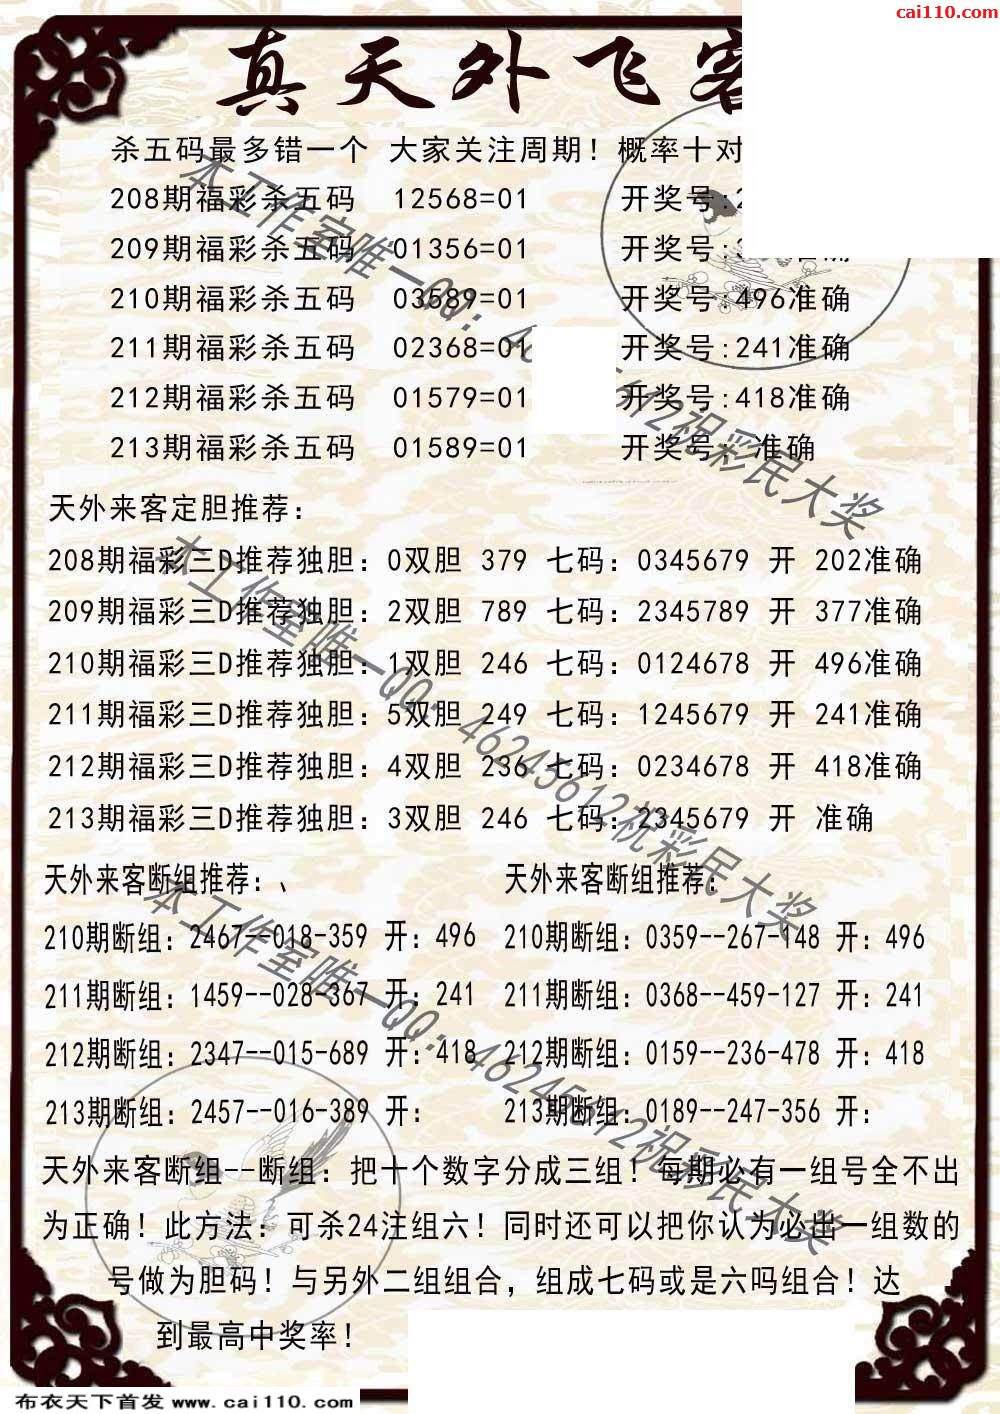 cai110.com
真天外飞客
杀五码最多错一个 大家关注周期！概率十对
208期福彩杀五码 12568=01 开奖号:2
209期福彩杀五码 01356=01 开奖号: 准确
210期福彩杀五码 03589=01 开奖号:496准确
211期福彩杀五码 02368=01 开奖号:241准确
212期福彩杀五码 01579=01 开奖号:418准确
213期福彩杀五码 01589=01 开奖号: 准确
天外来客定胆推荐：
208期福彩三D推荐独胆：0双胆 379 七码：0345679 开 202准确
209期福彩三D推荐独胆：2双胆 789 七码：2345789 开 377准确
210期福彩三D推荐独胆：1双胆 246 七码：0124678 开 496准确
211期福彩三D推荐独胆：5双胆 249 七码：1245679 开 241准确
212期福彩三D推荐独胆：4双胆 236 七码：0234678 开 418准确
213期福彩三D推荐独胆：3双胆 246 七码：2345679 开 准确
天外来客断组推荐：、 天外来客断组推荐：
210期断组：2467--018-359 开：496 210期断组：0359--267-148 开：496
211期断组：1459--028-367 开：241 211期断组：0368--459-127 开：241
212期断组：2347--015-689 开：418 212期断组：0159--236-478 开：418
213期断组：2457--016-389 开： 213期断组：0189--247-356 开：
天外来客断组--断组：把十个数字分成三组！每期必有一组号全不出
为正确！此方法：可杀24注组六！同时还可以把你认为必出一组数的
号做为胆码！与另外二组组合，组成七码或是六吗组合！达
到最高中奖率！
本工作室唯一QQ：46245612祝彩民大奖
本工作室唯一QQ：46245612祝彩民大奖
本工作室唯一QQ：46245612祝彩民大奖
布衣天下首发 www.cai110.com